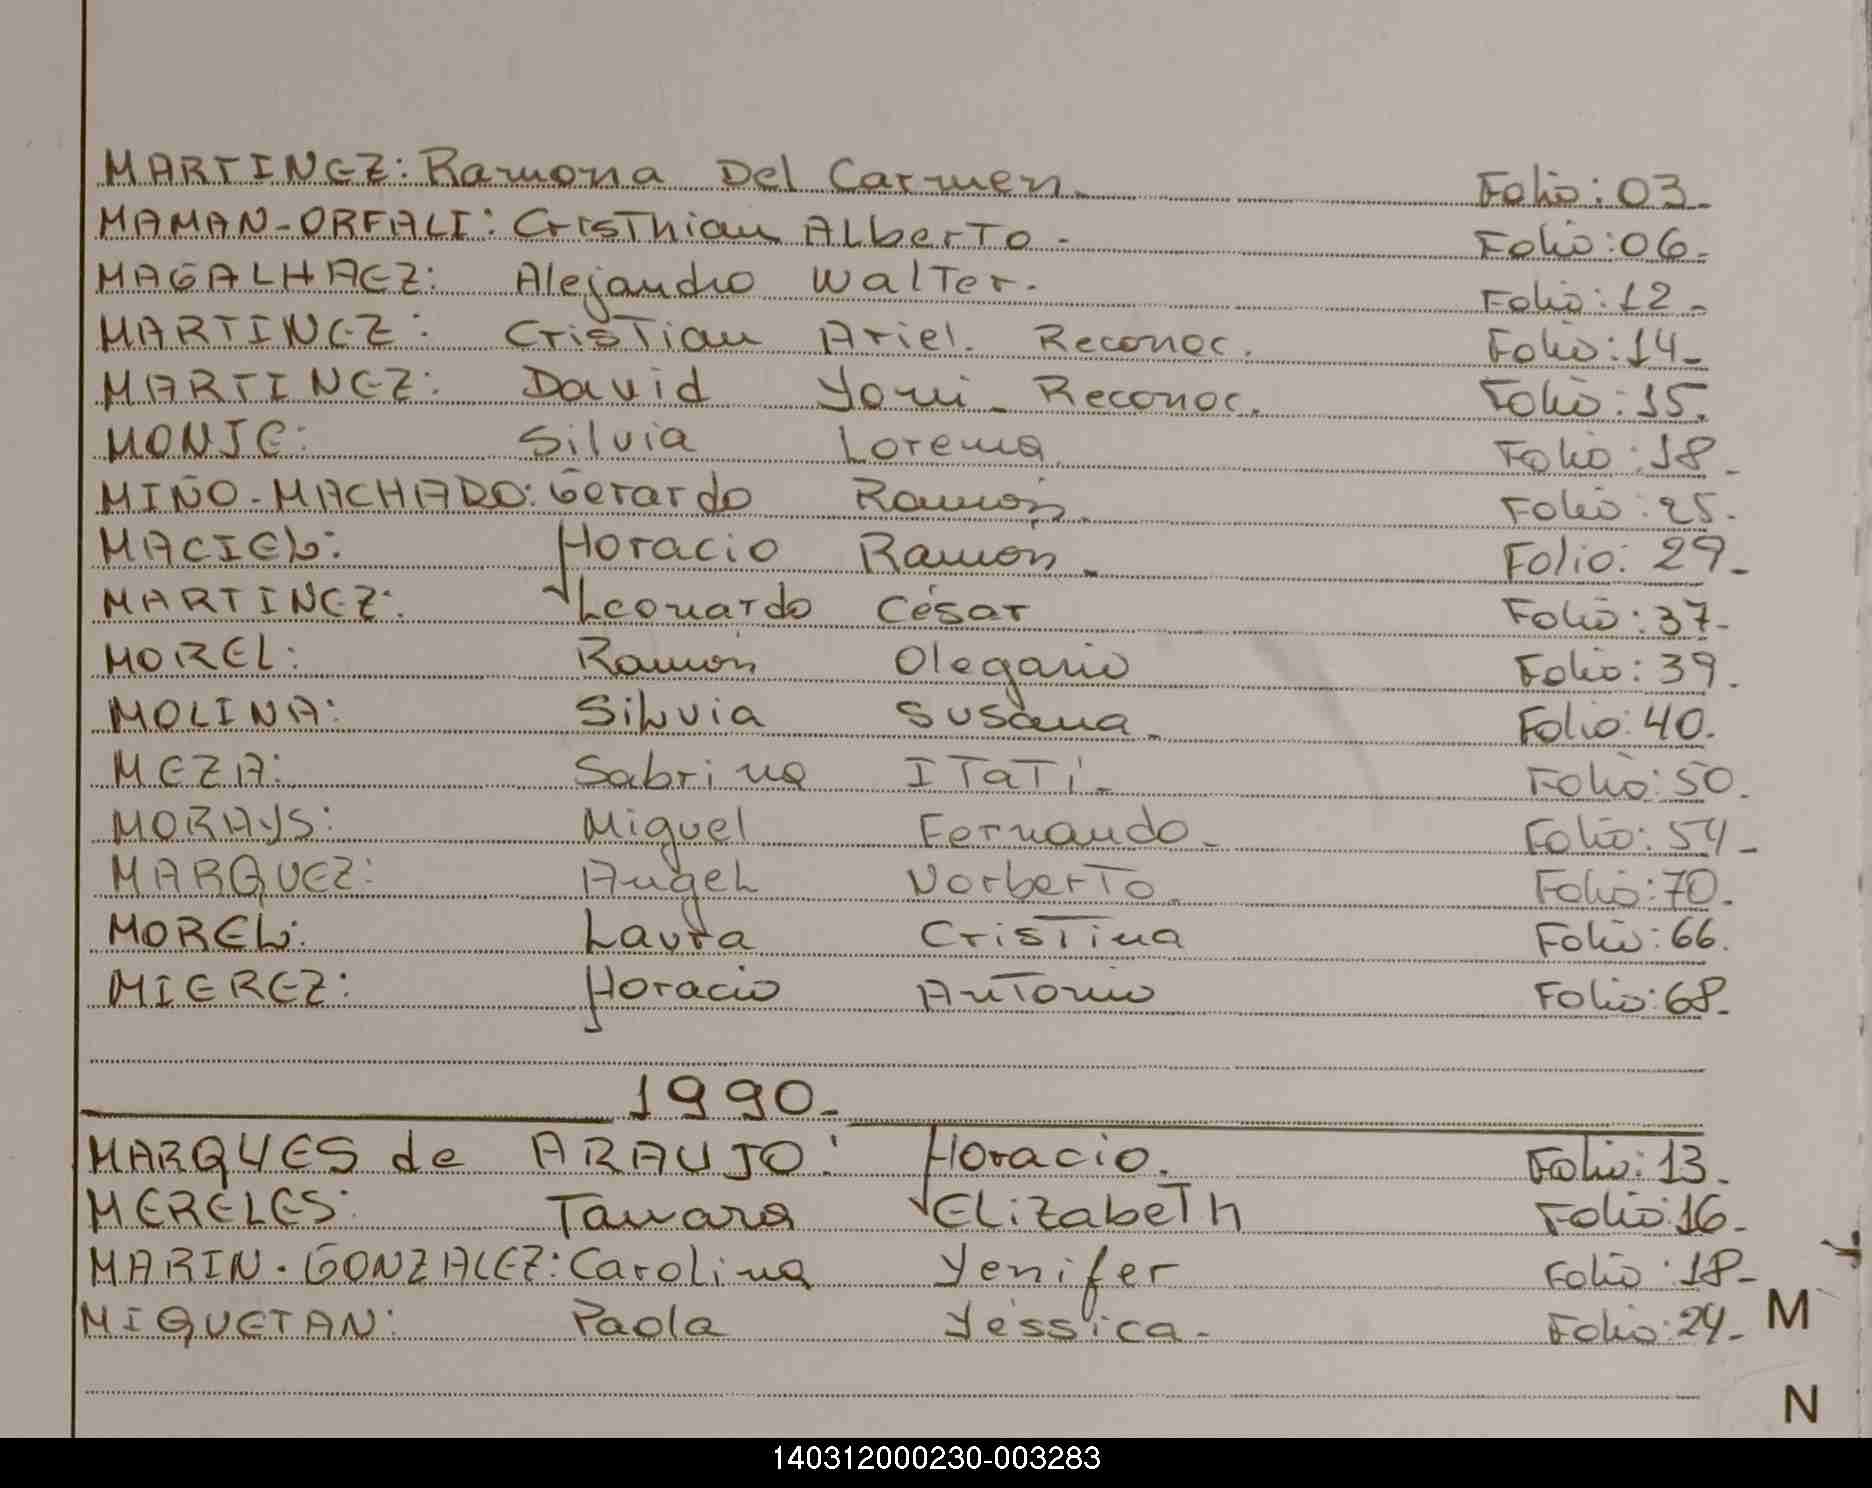 MARTINEZ: Ramona Del Carmen. Folio: 03.
MAMAN-ORFALI: Cristhian Alberto. Folio: 06.
MAGALHAEZ: Alejandro Walter. Folio: 12.
MARTINEZ: Cristian Ariel. Reconoc. Folio: 14.
MARTINEZ: David Yoni. Reconoc. Folio: 15.
MONJE: Silvia Lorena. Folio: 18.
MIÑO-MACHADO: Gerardo Ramón. Folio: 25.
MACIEL: Horacio Ramón. Folio: 29.
MARTINEZ: Leonardo César Folio: 37.
MOREL: Ramón Olegario Folio: 39.
MOLINA: Silvia Susana. Folio: 40.
MEZA: Sabrina Itatí. Folio: 50.
MORAYS: Miguel Fernando. Folio: 54.
MARQUEZ: Angel Norberto. Folio: 70.
MOREL: Laura Cristina Folio: 66.
MIEREZ: Horacio Antonio Folio: 68.
1990.
MARQUES de ARAUJO: Horacio. Folio: 13.
MERELES: Tamara Elizabeth Folio: 16.
MARIN-GONZALEZ: Carolina Yenifer Folio: 18.
MIQUETAN: Paola Yéssica. Folio: 24.
M
N
140312000230-003283